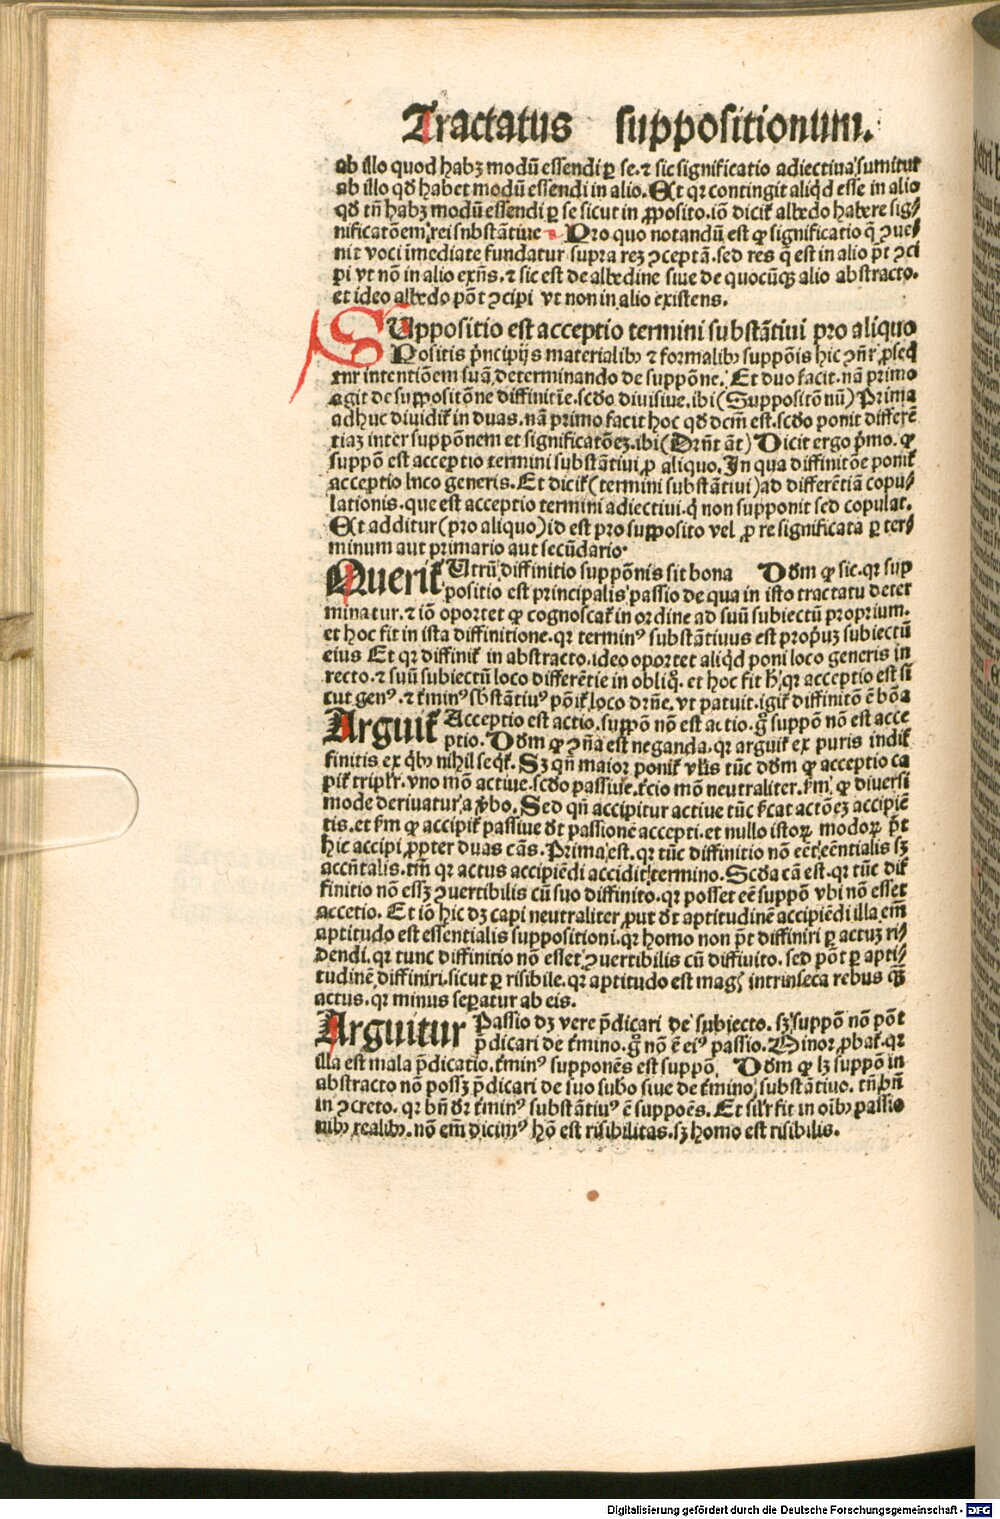 Tractatus suppositionum.
ab illo quod habꝫ modū essendi ꝑ se. ⁊ sic significatio adiectiua sumitur
ab illo qđ habet modū essendi in alio. Et qꝛ contingit aliqͥd esse in alio
qđ tñ habꝫ modū essendi ꝑ se sicut in ꝓposito. iō dicit̃ albedo habere sig⸗
nificatōem rei substātiue Pro quo notandū est ꝙ significatio q̄ ꝯue⸗
nit voci īmediate fundatur supra reꝫ ꝯceptā. sed res q̄ est in alio p̄t ꝯci
pi vt nō in alio exn̄s. ⁊ sic est de albedine siue de quocūqꝫ alio abstracto.
et ideo albedo pōt ꝯcipi vt non in alio existens.
SUppositio est acceptio termini substātiui pro aliquo
Positis pͥncipijs materialibꝰ ⁊ formalibꝰ suppōis hic ꝯñr ꝓseq̄
tur intentiōem suā determinando de suppōne. Et duo facit. nā primo
agit de suppositōne diffinitiē. scđo diuisiue. ibi (Suppositōnū) Prima
adhuc diuidit̃ in duas. nā primo facit hoc qđ dcm̄ est. scđo ponit differē
tiaꝫ inter suppōnem et significatōeꝫ. ibi (Drñt āt) Dicit ergo pͥmo. ꝙ
suppō est acceptio termini substātiui ꝓ aliquo. In qua diffinitōe ponit̃
acceptio loco generis. Et dicit̃ (termini substātiui) ad differētiā copu⸗
lationis. que est acceptio termini adiectiui. q̄ non supponit sed copulat.
Et additur (pro aliquo) id est pro supposito vel ꝓ re significata ꝑ ter⸗
minum aut primario aut secūdario.
Querit̃ Utrū diffinitio suppōnis sit bona Dđm ꝙ sic. qꝛ sup
positio est principalis passio de qua in isto tractatu deter
minatur. ⁊ iō oportet ꝙ cognoscat̃ in ordine ad suū subiectū proprium.
et hoc fit in ista diffinitione. qꝛ terminꝰ substātiuus est propͥuꝫ subiectū
eius Et qꝛ diffinit̃ in abstracto. ideo oportet aliqͥd poni loco generis in
recto. ⁊ suū subiectū loco differētie in obliqͦ. et hoc fit hͥ. qꝛ acceptio est si
cut genꝰ. ⁊ t̃minꝰ sb̄stātiuꝰ pōit̃ loco drñe. vt patuit. igit̃ diffinitō ē bōa
Arguit̃ Acceptio est actio. suppō nō est actio. gͦ suppō nō est acce
ptio. Dđm ꝙ ꝯñā est neganda. qꝛ arguit̃ ex puris indif̃
finitis ex qͥbꝰ nihil seqͥt̃. Sꝫ qñ maior ponit̃ vl̃is tūc dđm ꝙ acceptio ca
pit̃ tripl̃r. vno mō actiue. scđo passiue. t̃cio mō neutraliter. fm̄ ꝙ diuersi
mode deriuatur a v̓bo. Sed qñ accipitur actiue tūc sͥcat actōeꝫ accipiē
tis. et fm̄ ꝙ accipit̃ passiue dt̃ passionē accepti. et nullo istoꝝ modoꝝ p̄t
hic accipi ꝓpter duas cās. Prima est. qꝛ tūc diffinitio nō eēt eēntialis sꝫ
accñtalis. tm̄ qꝛ actus accipiēdi accidit termino. Scđa cā est. qꝛ tūc dif̃
finitio nō essꝫ ꝯuertibilis cū suo diffinito. qꝛ posset eē suppō vbi nō esset
accetio. Et iō hic dꝫ capi neutraliter ꝓut dt̃ aptitudinē accipiēdi illa em̄
aptitudo est essentialis suppositioni. qꝛ homo non p̄t diffiniri ꝑ actuꝫ ri⸗
dendi. qꝛ tunc diffinitio nō esset ꝯuertibilis cū diffinito. sed pōt ꝑ apti⸗
tudinē diffiniri. sicut ꝑ risibile. qꝛ aptitudo est magꝭ intrinseca rebus qͣꝫ
actus. qꝛ minus seꝑatur ab eis.
Arguitur Passio dꝫ vere p̄dicari de subiecto. sꝫ suppō nō pōt
p̄dicari de t̃mino. gͦ nō ē eiꝰ passio. Minor ꝓbat̃. qꝛ
illa est mala p̄dicatio. t̃minꝰ supponēs est suppō. Dđm ꝙ lꝫ suppō in
abstracto nō possꝫ p̄dicari de suo subō siue de t̃mino substātiuo. tñ bñ
in ꝯcreto. qꝛ bñ dr̃ t̃minꝰ substātiuꝰ ē suppoēs. Et sil̃r fit in oībꝰ passio
nibꝰ realibꝰ. nō em̄ dicimꝰ hō est risibilitas. sꝫ homo est risibilis.
Digitalisierung gefördert durch die Deutsche Forschungsgemeinschaft - DFG